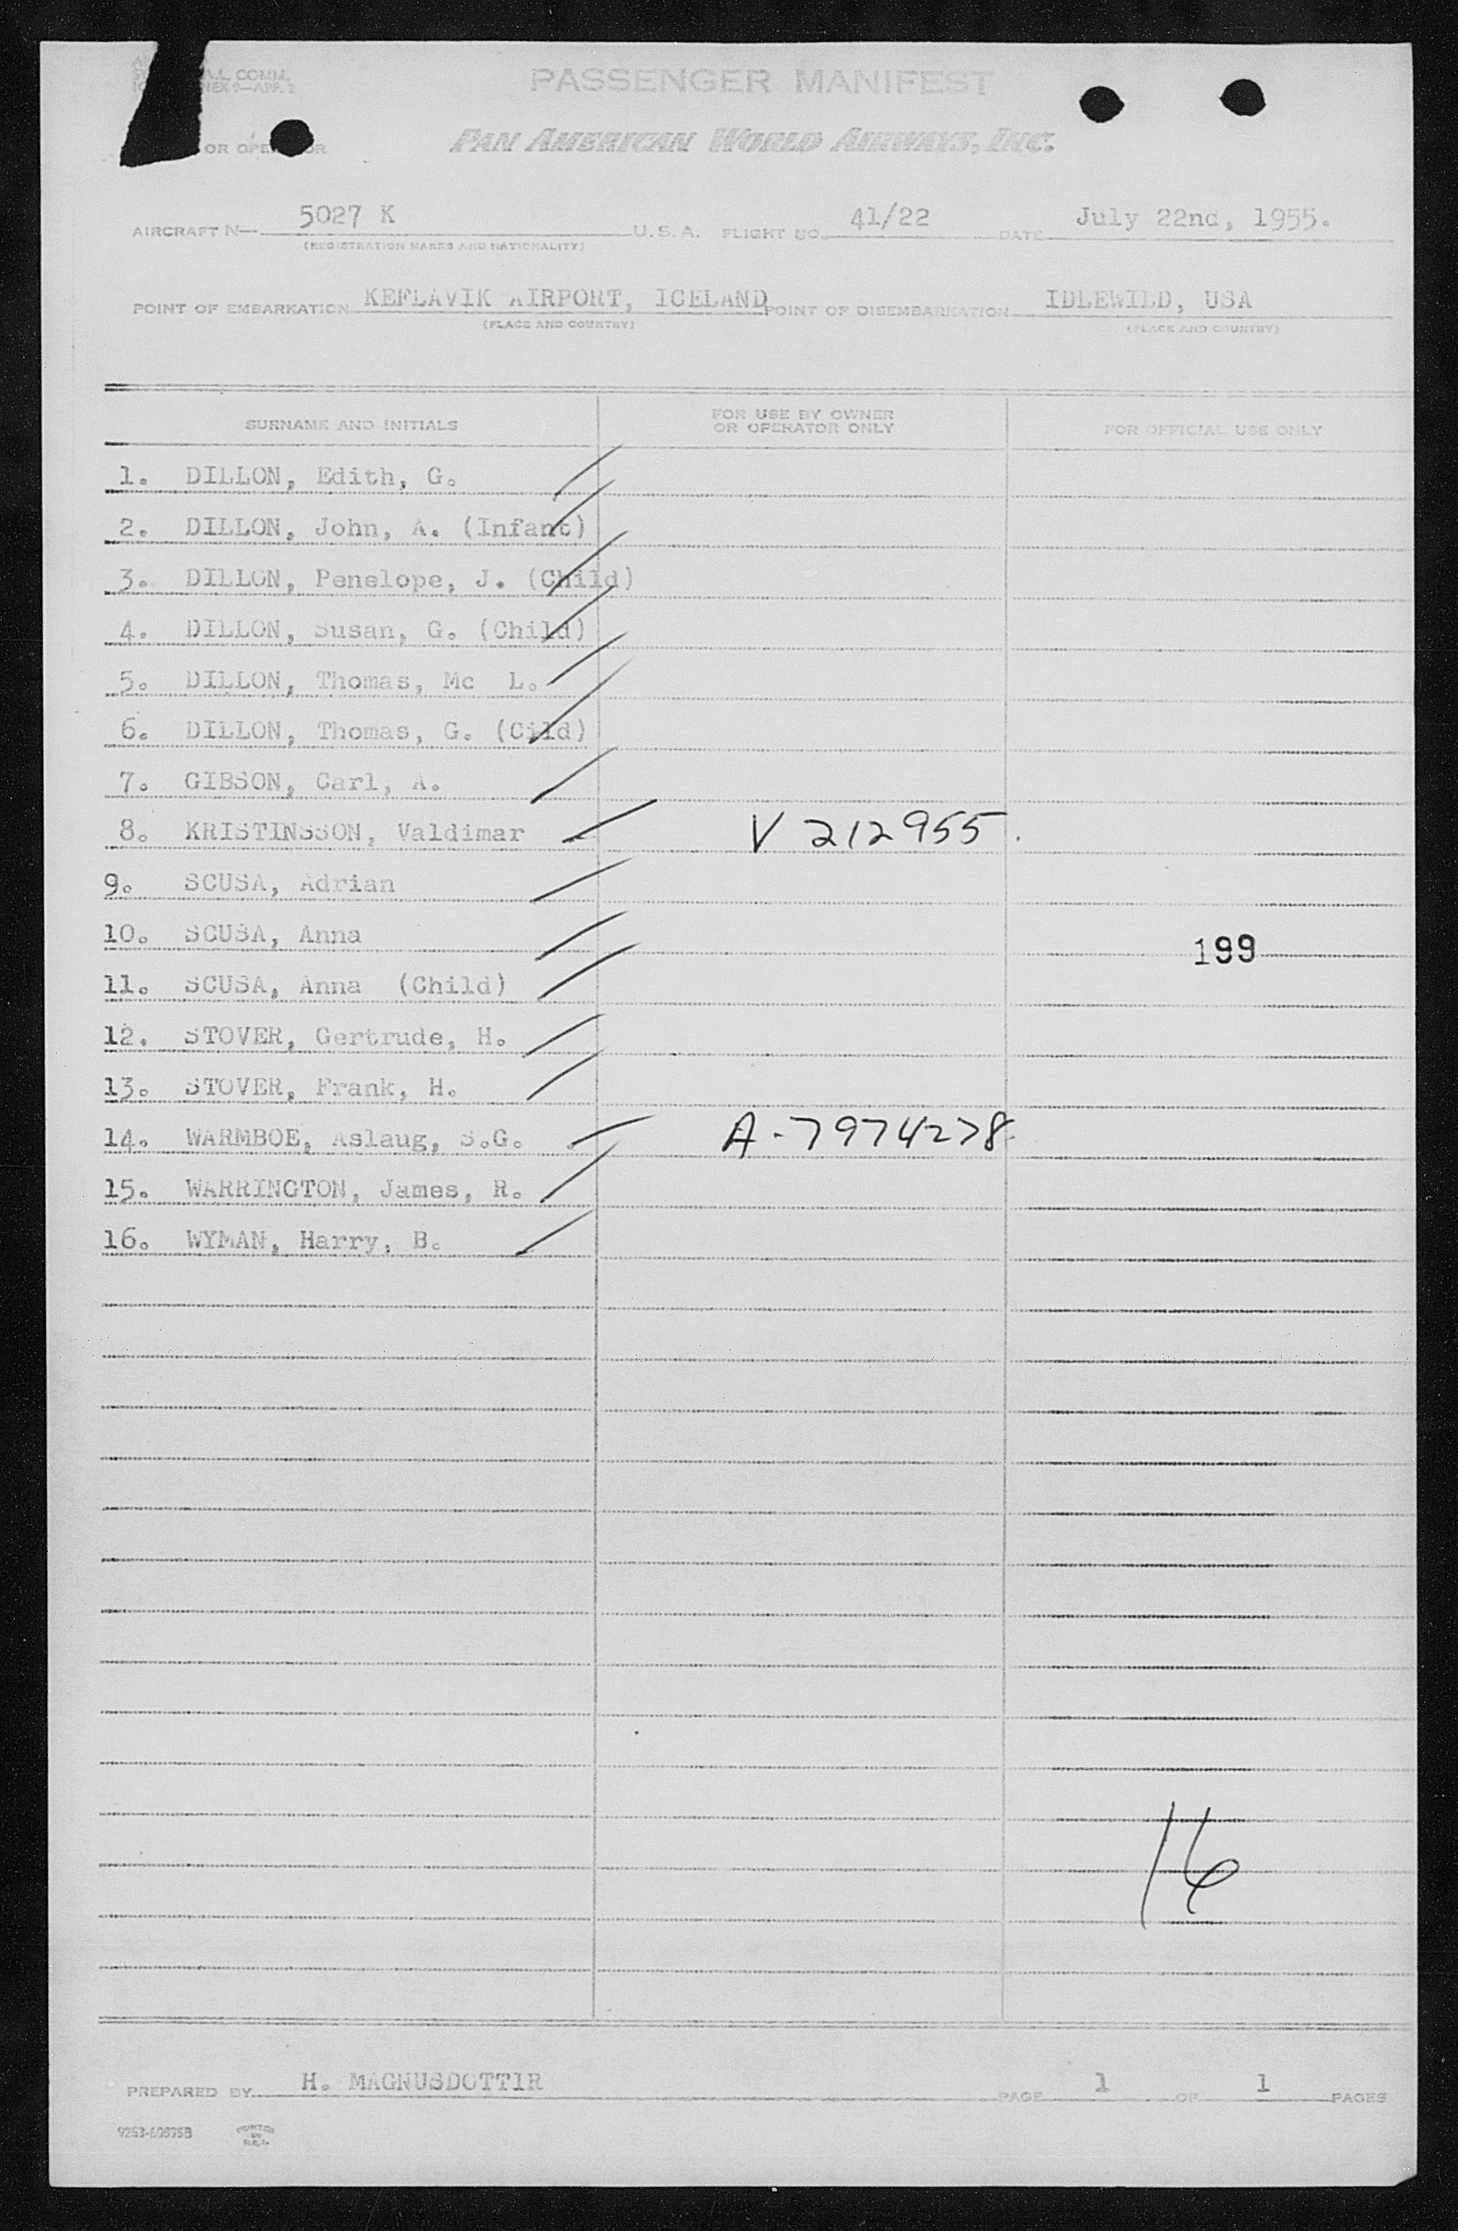 A.L COMM.
NEX 9—APP. 2
PASSENGER MANIFEST
OR OPERATOR
PAN AMERICAN WORLD AIRWAYS, INC.
AIRCRAFT N— 5027 K U.S.A. FLIGHT NO. 41/22 DATE July 22nd, 1955.
(REGISTRATION MARKS AND NATIONALITY)
POINT OF EMBARKATION KEFLAVIK AIRPORT, ICELAND POINT OF DISEMBARKATION IDLEWILD, USA
(PLACE AND COUNTRY) (PLACE AND COUNTRY)
SURNAME AND INITIALS FOR USE BY OWNER OR OPERATOR ONLY FOR OFFICIAL USE ONLY
1. DILLON, Edith, G.
2. DILLON, John, A. (Infant)
3. DILLON, Penelope, J. (Child)
4. DILLON, Susan, G. (Child)
5. DILLON, Thomas, Mc L.
6. DILLON, Thomas, G. (Cild)
7. GIBSON, Carl, A.
8. KRISTINSSON, Valdimar V 212955.
9. SCUSA, Adrian
10. SCUSA, Anna 199
11. SCUSA, Anna (Child)
12. STOVER, Gertrude, H.
13. STOVER, Frank, H.
14. WARMBOE, Aslaug, S.G. A-7974278
15. WARRINGTON, James, R.
16. WYMAN, Harry, B.
16
PREPARED BY H. MAGNUSDOTTIR PAGE 1 OF 1 PAGES
PRINTED
IN
U.S.A.